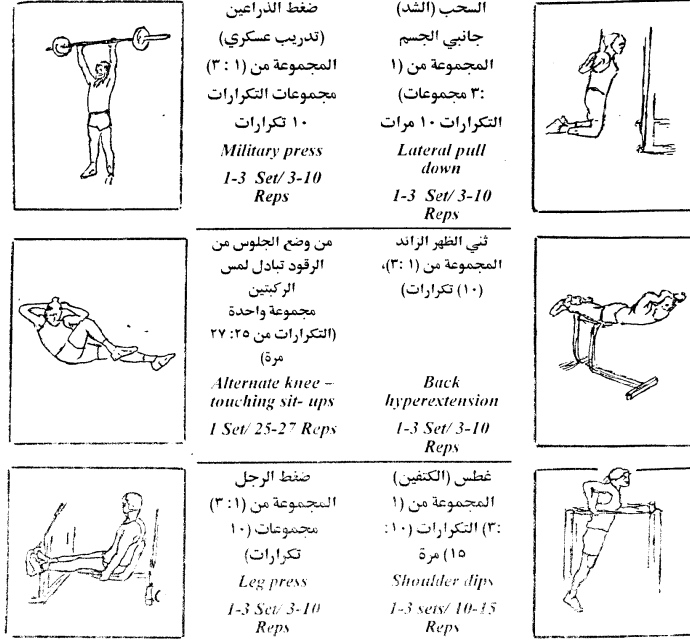 السحب (الشد)
جانبي الجسم
المجموعة من (١
:٣ مجموعات)
التكرارات ١٠ مرات
Lateral pull
down
1-3 Set/ 3-10
Reps
ضغط الذراعين
(تدريب عسكري)
المجموعة من (١ : ٣)
مجموعات التكرارات
١٠ تكرارات
Military press
1-3 Set/ 3-10
Reps
ثني الظهر الزائد
المجموعة من (١ :٣)،
(١٠) تكرارات)
Back
hyperextension
1-3 Set/ 3-10
Reps
من وضع الجلوس من
الرقود تبادل لمس
الركبتين
مجموعة واحدة
(التكرارات من ٢٥: ٢٧
مرة)
Alternate knee –
touching sit- ups
1 Set/ 25-27 Reps
غطس (الكتفين)
المجموعة من (١
:٣) التكرارات (١٠:
١٥) مرة
Shoulder dips
1-3 sets/ 10-15
Reps
ضغط الرجل
المجموعة من (١ : ٣)
مجموعات (١٠
تكرارات)
Leg press
1-3 Set/ 3-10
Reps